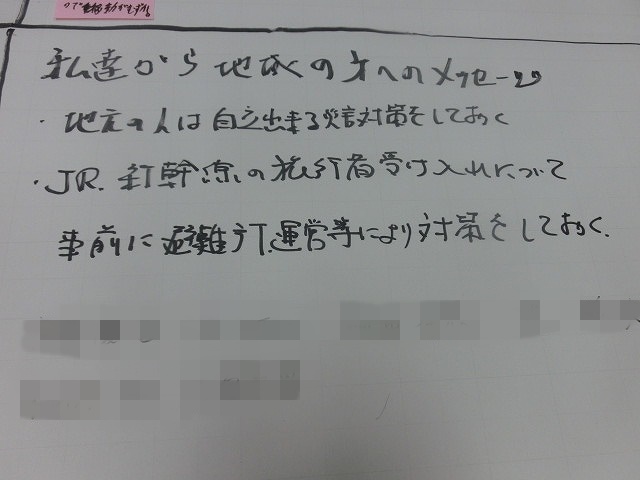 私達から地域の方へのメッセージ
・地元の人は自立出来る災害対策をしておく
・JR.新幹線の旅行者受け入れについて
事前に避難所運営等により対策をしておく.